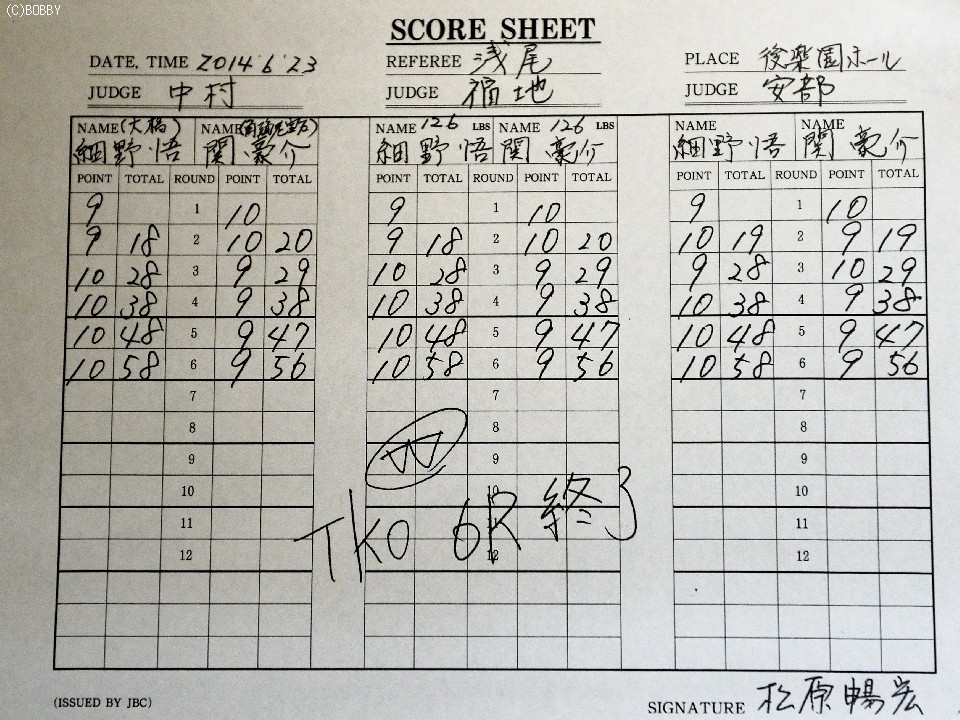 (C)BOBBY
SCORE SHEET
DATE, TIME 2014'6'23 REFEREE 浅尾 PLACE 後楽園ホール
JUDGE 中村 JUDGE 福地 JUDGE 安部
NAME (大橋) NAME NAME 126 LBS NAME 126 LBS NAME NAME
細野悟 関豪介 細野悟 関豪介 細野悟 関豪介
POINT TOTAL ROUND POINT TOTAL POINT TOTAL ROUND POINT TOTAL POINT TOTAL ROUND POINT TOTAL
9 1 10 9 1 10 9 1 10
9 18 2 10 20 9 18 2 10 20 10 19 2 9 19
10 28 3 9 29 10 28 3 9 29 9 28 3 10 29
10 38 4 9 38 10 38 4 9 38 10 38 4 9 38
10 48 5 9 47 10 48 5 9 47 10 48 5 9 47
10 58 6 9 56 10 58 6 9 56 10 58 6 9 56
7 7 7
8 8 8
9 W 9 9
10 10 10
11 11 11
TKO 6R 終了
12 12 12
(ISSUED BY JBC) SIGNATURE 松原暢宏